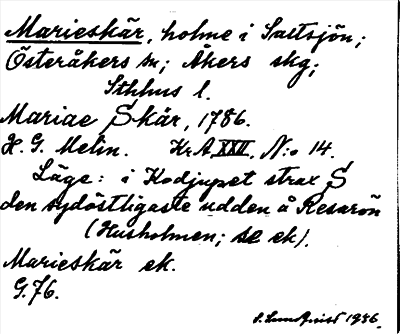 Marieskär, holme i Saltsjön;
Österåkers sn; Åkers skg;
Sthlms l.
Mariae Skär, 1786.
H. G. Melin. Kr A XXII, N:o 14.
Läge: i Kodjupet strax S
den sydöstligaste udden å Resarön
(Husholmen; se ek).
Marieskär ek.
G.76.
S. Lundqvist 1986.